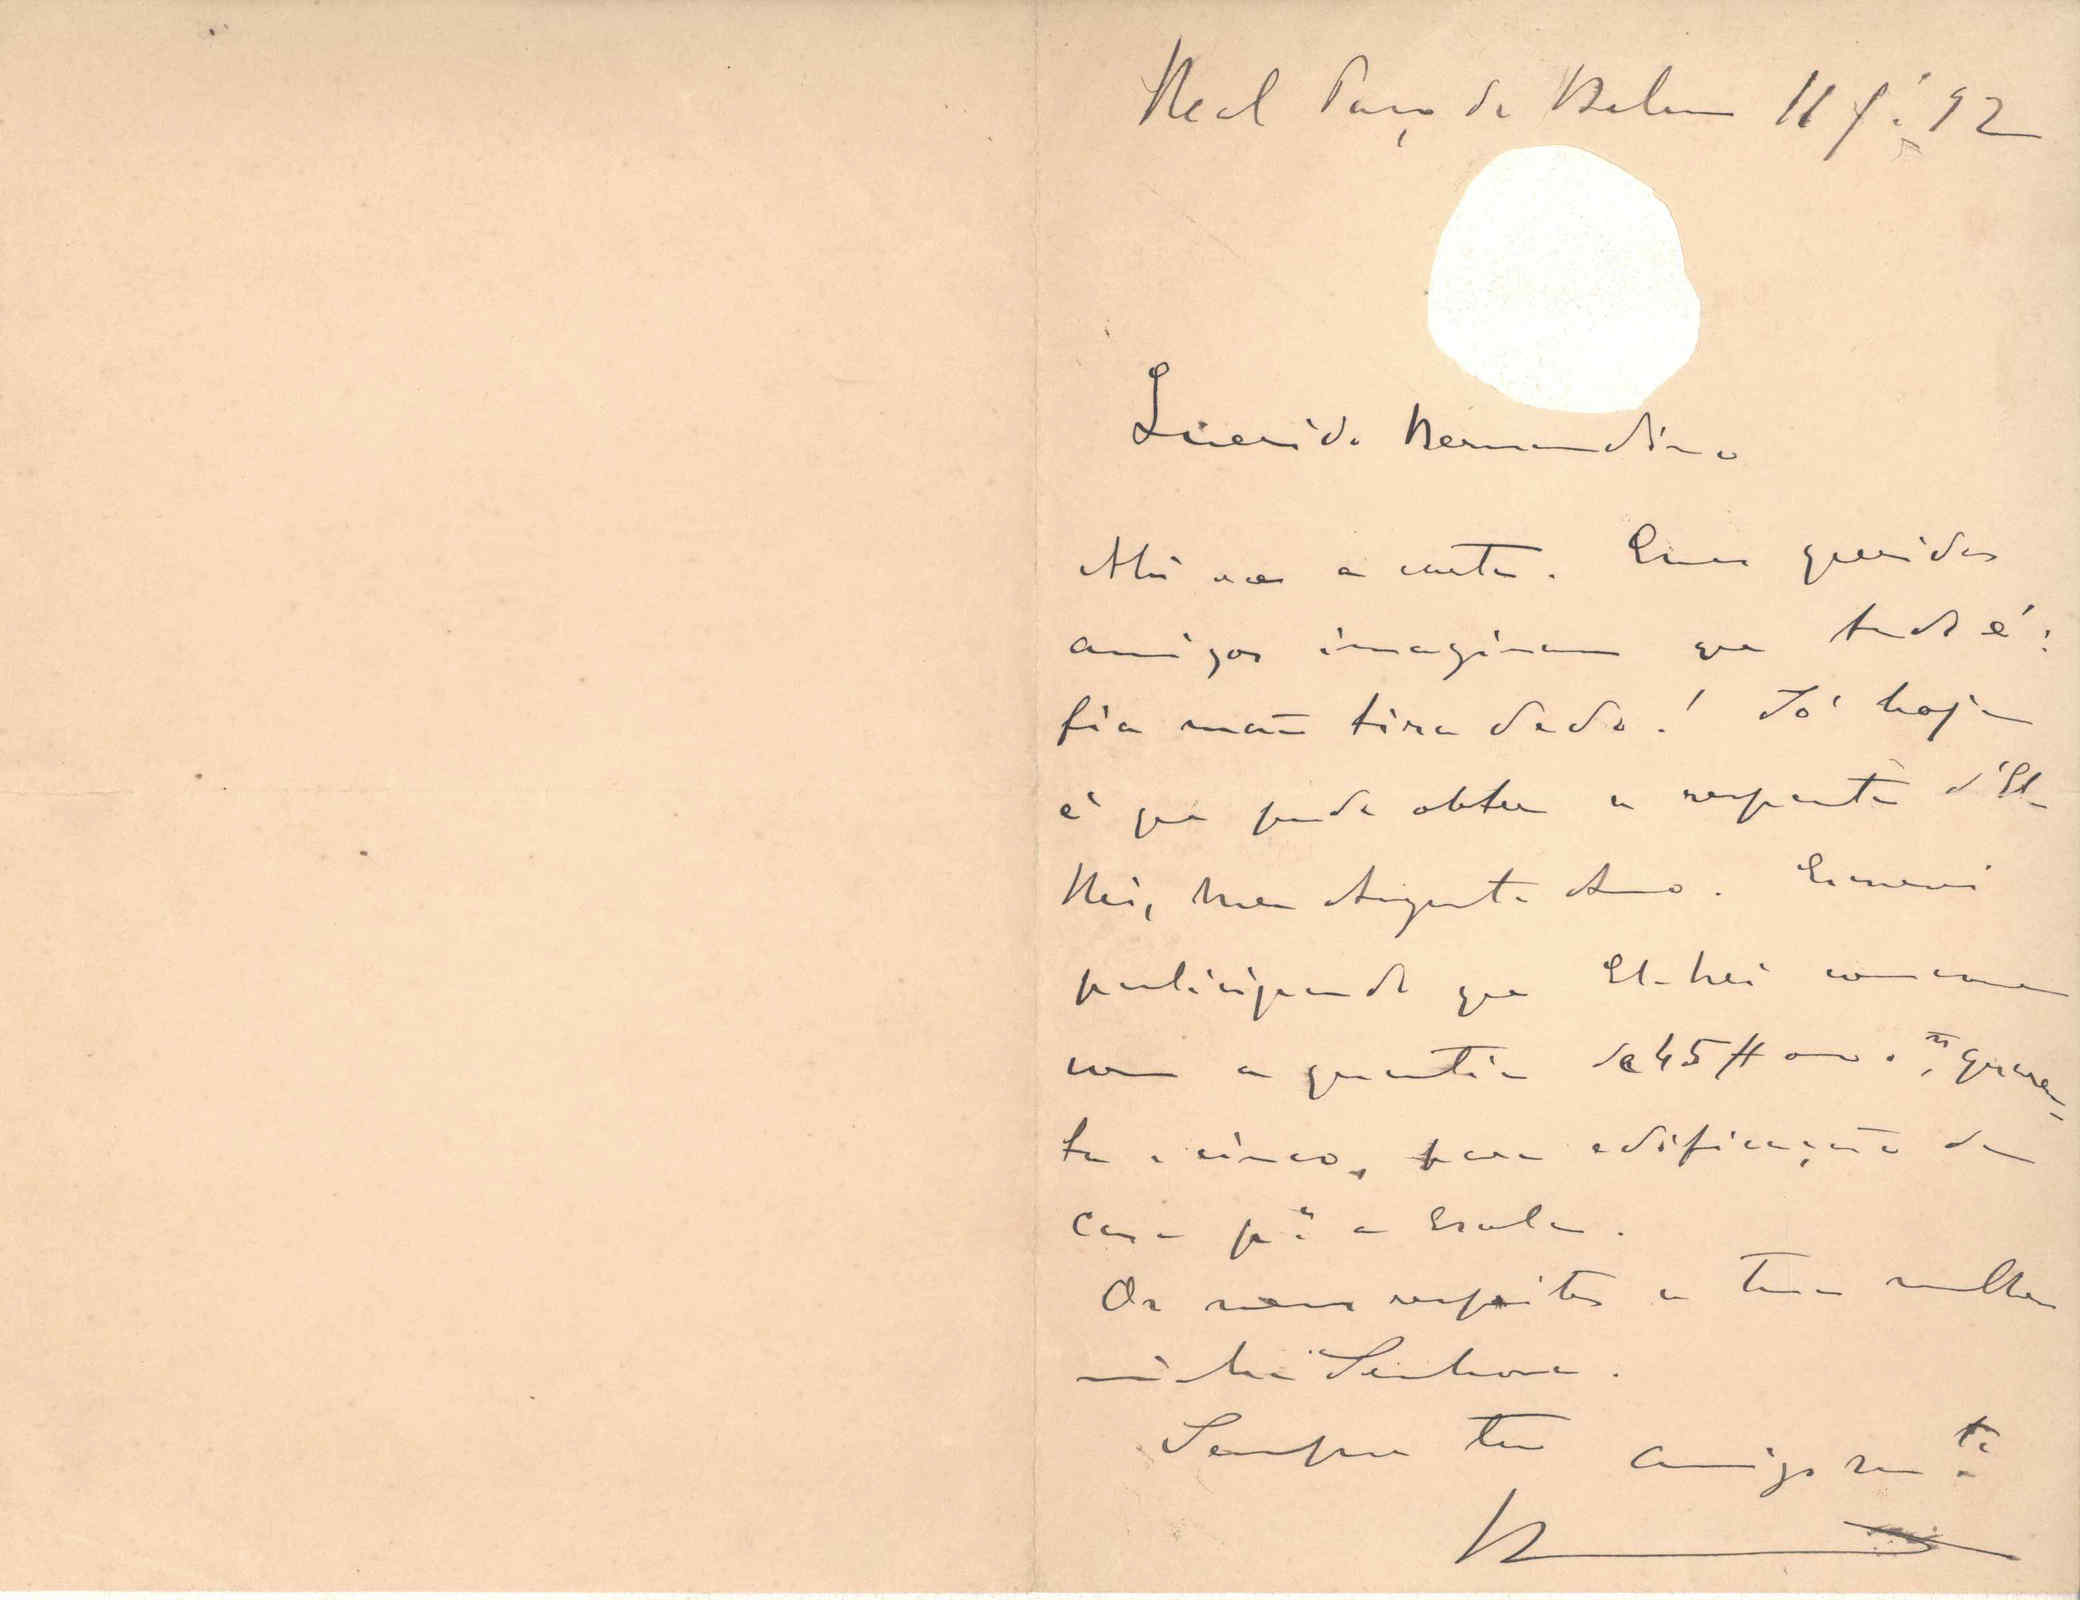 Real Paço de Belem 11 92
Querido Bernardino
Ahi vae a carta. Esses queridos
amigos imaginam que tudo é:
fia mão tira dedo! Só hoje
é que pude obter a resposta d'El-
Rei, meu Augusto Amo. Escrevi
participando que El-Rei concorre
com a quantia de 45 # quaren-
ta e cinco, para edificação da
casa p.ª a Escola.
Os meus respeitos a tua mulher
minha Senhora.
Sempre teu amigo m.to